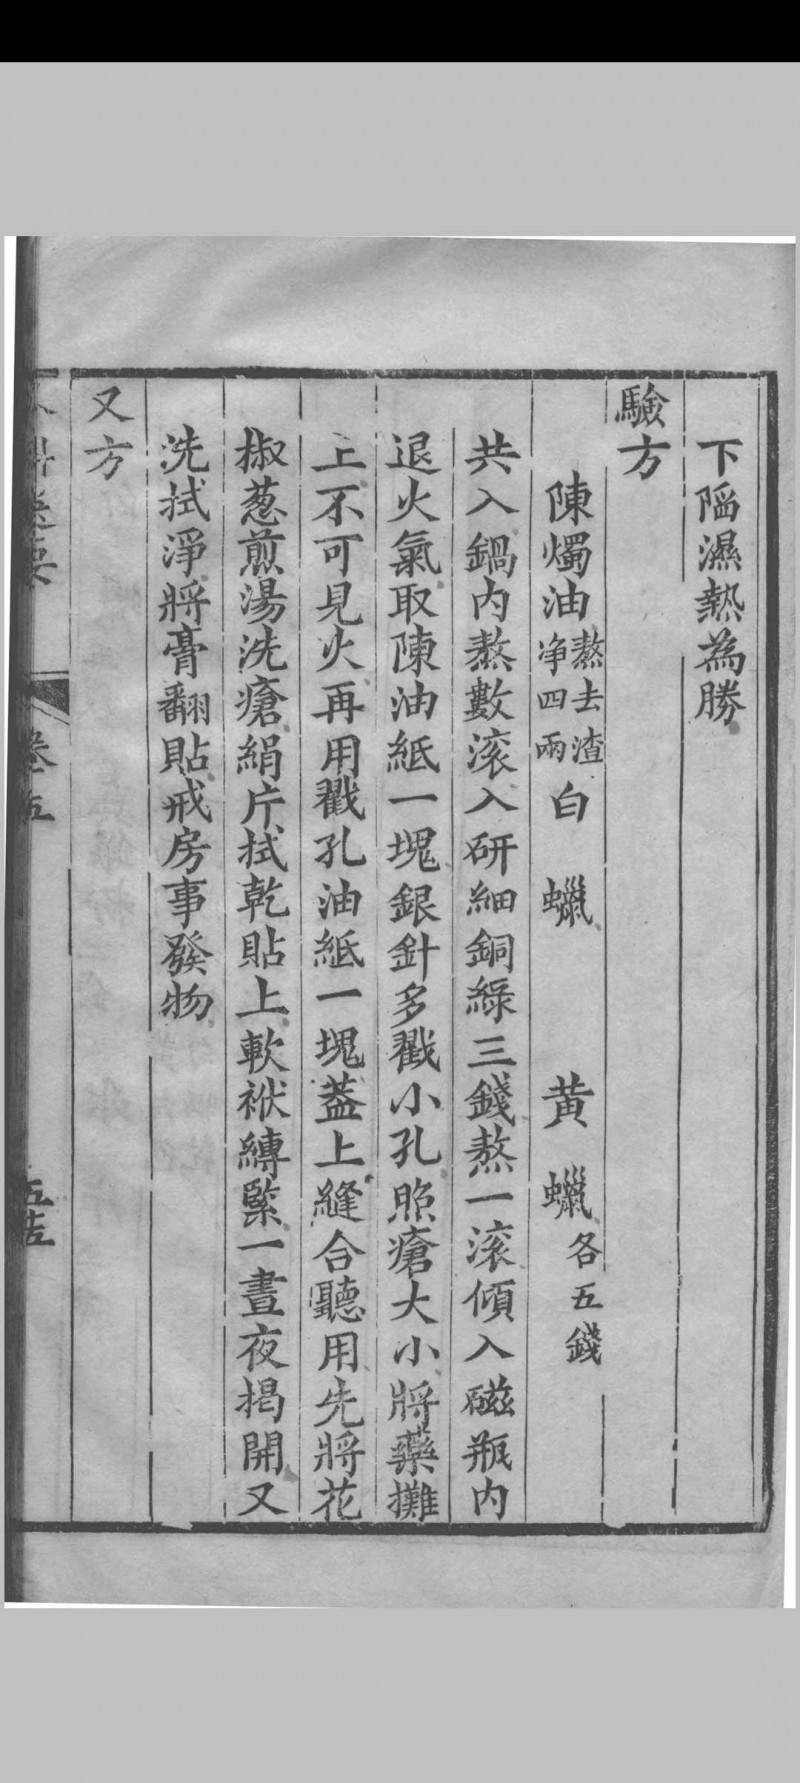 下陷濕熱為勝
驗方
陳燭油熬去渣淨四兩白蠟黃蠟各五錢
共入鍋內熬數滚入研細銅綠三錢熬一滚傾入磁瓶內
退火氣取陳油紙一塊銀針多戳小孔照瘡大小將藥攤
上不可見火再用戳孔油紙一塊葢上縫合聽用先將花
椒葱煎湯洗瘡絹片拭乾貼上軟袱縛緊一晝夜揭開又
洗拭淨將膏翻貼戒房事發物
又方
卷五